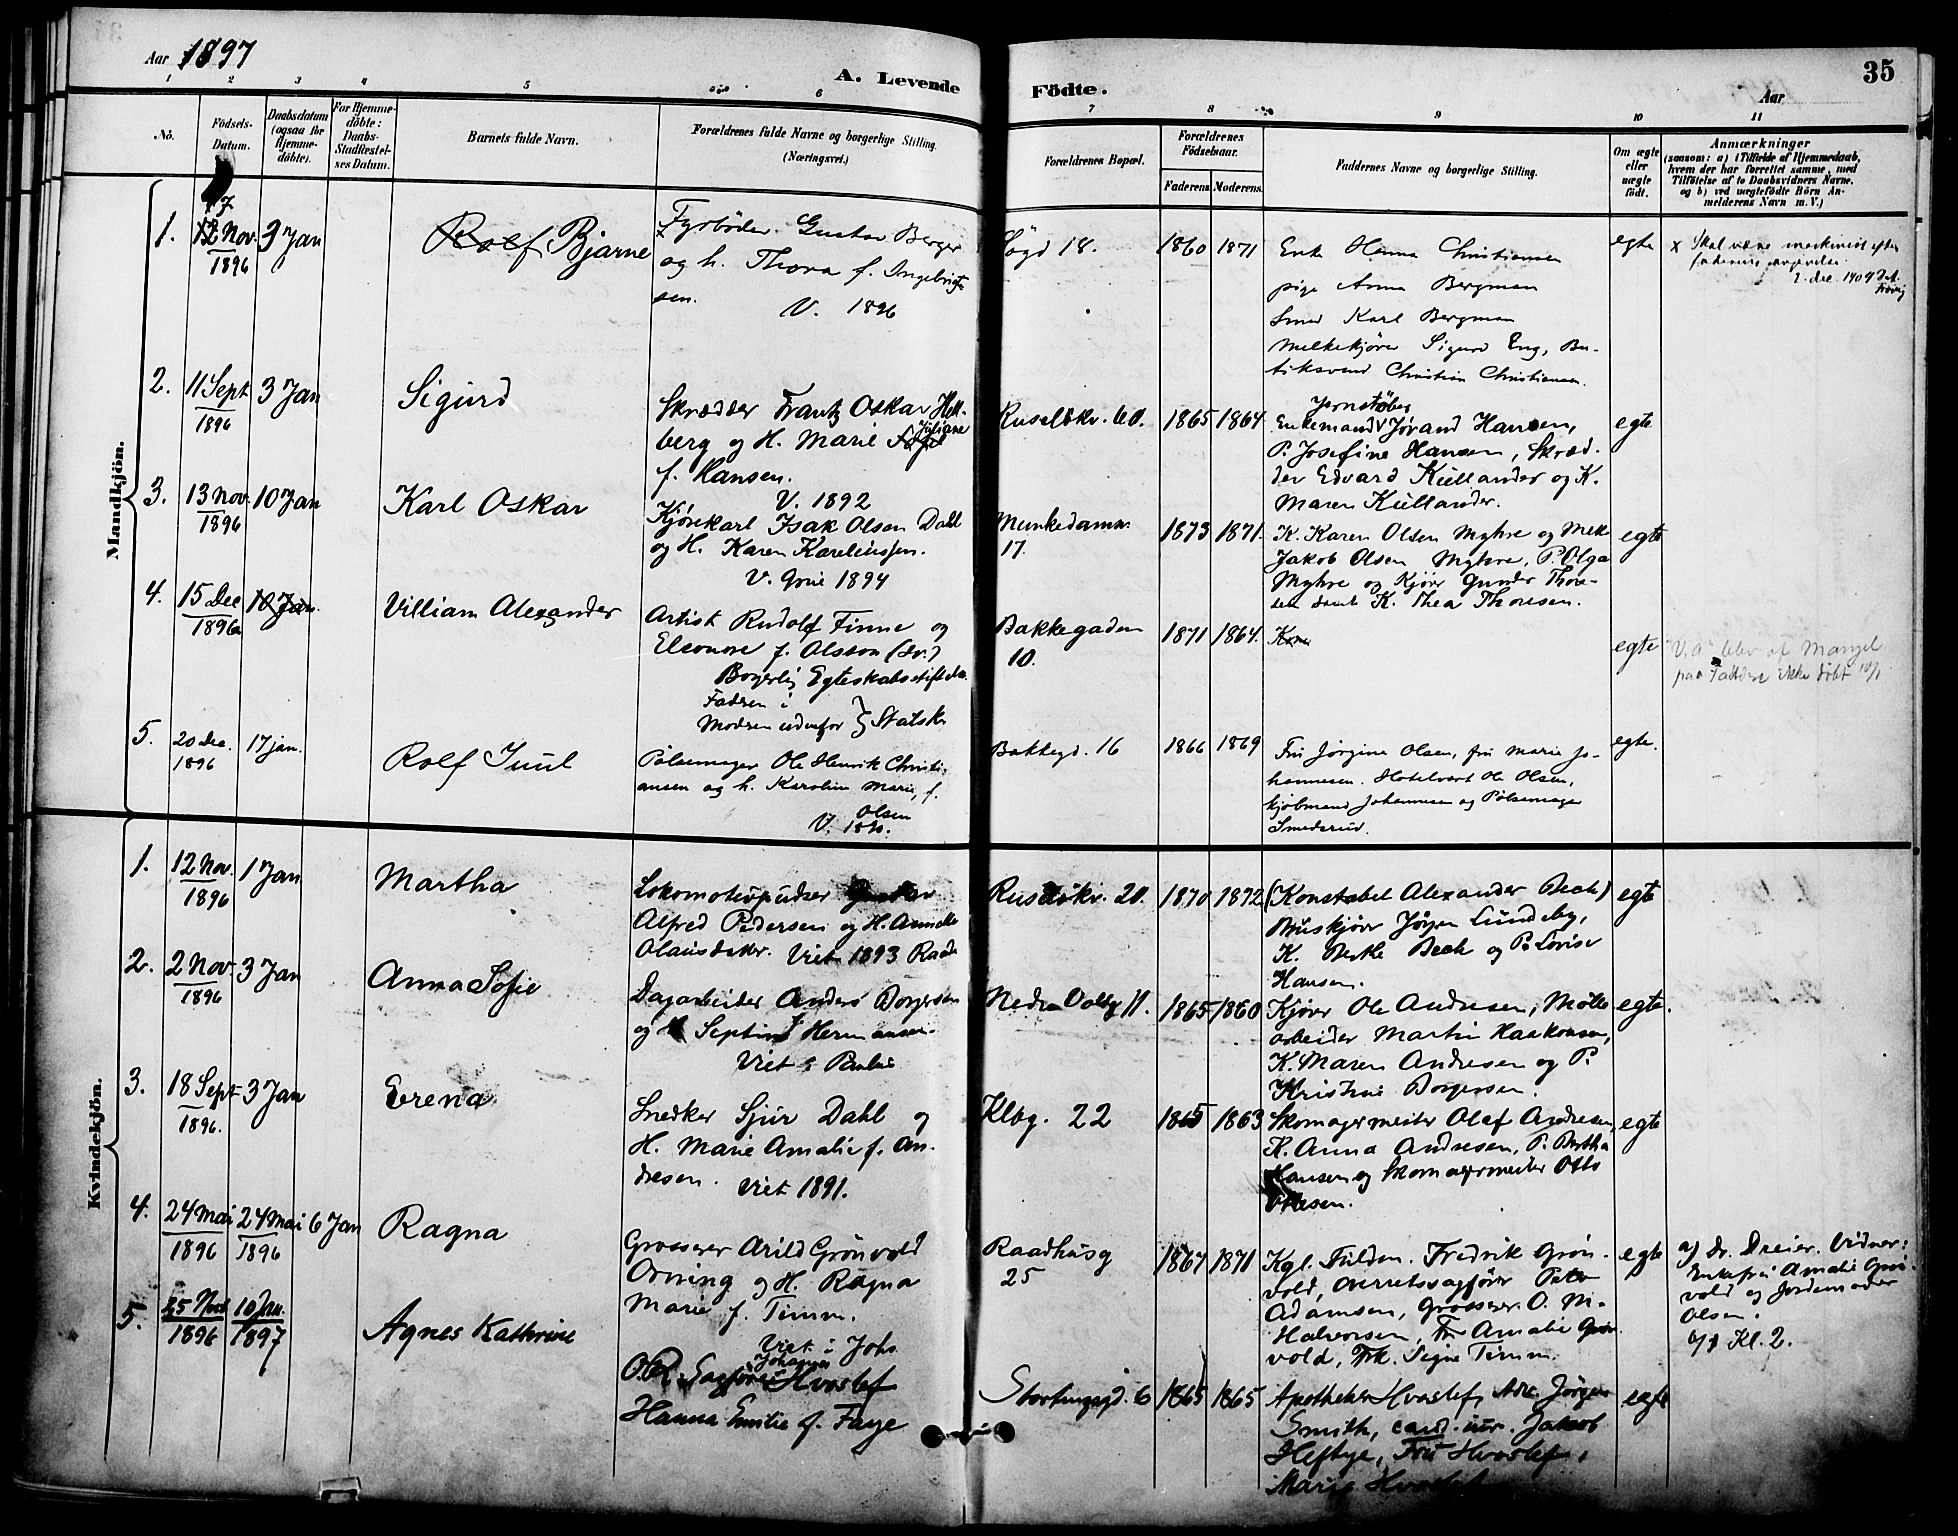 Aar 1897
A. Levende Födte.
35
Aar
1 2 3 4 5 6 7 8 9 10 11
No.
Födsels-
Datum.
Daabsdatum
(ogsaa for
Hjemme-
döbte).
For Hjemme-
döbte:
Daabs-
Stadfæstel-
ses Datum.
Barnets fulde Navn.
Forældrenes fulde Navne og borgerlige Stilling.
(Næringsvei.)
Forældrenes Bopæl.
Forældrenes
Födselsaar.
Faderens. Moderens.
Faddernes Navne og borgerlige Stilling.
Om ægte
eller
uægte
födt.
Anmærkninger
(saasom: a) i Tilfælde af Hjemmedaab,
hvem der har forrettet samme, med
Tilföielse af to Daabsvidners Navne,
og b) ved uægtefödte Börn An-
melderens Navn m. V.)
Mandkjön.
1.
17
12 Nov.
1896
3 Jan
Rolf Bjarne
Fyrbøder Gustav Berger
og h. Thora f. Ingebrigt-
sen.
V. 1896
Løgd 18.
1860 1871
Enke Hanna Christiansen
pige Anna Bergman
Smed Karl Bergman
Melkekjører Sigurd Eng, Bu-
tiksvend Christian Christiansen.
egte
x Skal være maskinist efter
faderens
2. Sept
2.
11 Sept
1896
3 Jan
Sigurd
Skrædder Frantz Oskar Hell-
berg og H. Marie Sofie Juliane
f. Hansen.
V. 1892
Ruseløkv. 60.
1865 1864
Jernstøber
Enkemand Jørand Hansen,
P. Josefine Hansen, Skræd-
der Edvard Kullander og K.
Maren Kullander.
egte
3.
13 Nov.
1896
10 Jan
Karl Oskar
Kjørekarl Isak Olsen Dahl
og H. Karen Karelinssen.
V. Grue 1894
Munkedamsv.
17.
1873 1871.
K. Karen Olsen Myhre og Mek
Jakob Olsen Myhre, P. Olga
Myhre og Kjører Gunder Thore-
sen samt K. Thea Thoresen.
egte
4.
15 Dec
1896
10 Jan.
Villiam Alexander
Artist Rudolf Finne og
Eleonore f. Olsson (sv.)
Borgerlig Egteskabsstiftelse.
Fadren i
Modren udenfor } Statsk.
Bakkegaden
10.
1871 1864.
Kone
egte
blev af Mangel
paa Faddere ikke døbt 10/1
5.
20 Dec.
1896
17 jan.
Rolf Juul
Pølsemager Ole Henrik Christi-
ansen og h. Karoline Marie, f.
Olsen
Bakkegd. 16
1866 1869
Fru Jørgine Olsen, fru Marie Jo-
hannesen. Hotelvært Ole Olsen,
kjøbmand Johannesen og Pølsemager
Smedsrud.
egte.
Kvindekjön.
1.
12 Nov.
1896
1 Jan
Martha
Lokomotivpudser
Alfred Pedersen og H. Annette
Olausdatter. Viet 1893 Raade
Ruseløkv. 20.
1870 1872
(Konstabel Alexander Bech)
Buskjører Jørgen Lundeby,
K. Berthe Bech og P. Lovise
Hansen.
egte
2.
2 Nov.
1896
3 Jan
Anna Sofie
Dagarbeider Anders Borgersen
og H Septine f Hermansen.
Viet i Paulus
Nedre Voldg 11.
1865 1860
Kjører Ole Andresen, Mølle
arbeider Martin Haakonsen,
K. Maren Andresen og P.
Kristine Borgersen.
egte.
3.
18 Sept
1896.
3 Jan
Erena
Snedker Sjur Dahl og
H. Marie Amalie f. An-
dresen. Viet 1891.
Klbg. 22
1865 1863
Skomagermester Olaf Andresen,
K. Anna Andresen, P. Bertha
Hansen og Skomagermester Otto
Olsen.
egte
4.
24 Mai
1896
24 Mai
1896
6 Jan
Ragna
Grosserer Arild Grönvold
Orning og H. Ragna
Marie f. Timm.
Viet i Johs
Raadhusg
25
1867 1871
Kgl. Fuldm. Fredrik Grön-
vold, Overretssagfører Peter
Adamsen, Grosserer O. M.
Halvorsen, Fr Amalie Grön-
vold, Frk. Signe Timm.
egte
a) Dr. Dreier. Vidner:
Enkefru Amalie Grön-
vold og Jordemoder
Olsen.
Kl. 2.
5.
25 Nov
1896
10 Jan.
1897
Agnes Kathrine
O.R. Sagfører Johannes Hvoslef
Hanna Emilie f. Faye
Stortingsgd. 6
1865 1865
Apotheker Hvoslef, Jørgen
Smith, cand. jur. Jakob
Heftye, Fru Hvoslef,
Marie Hvoslef
egte